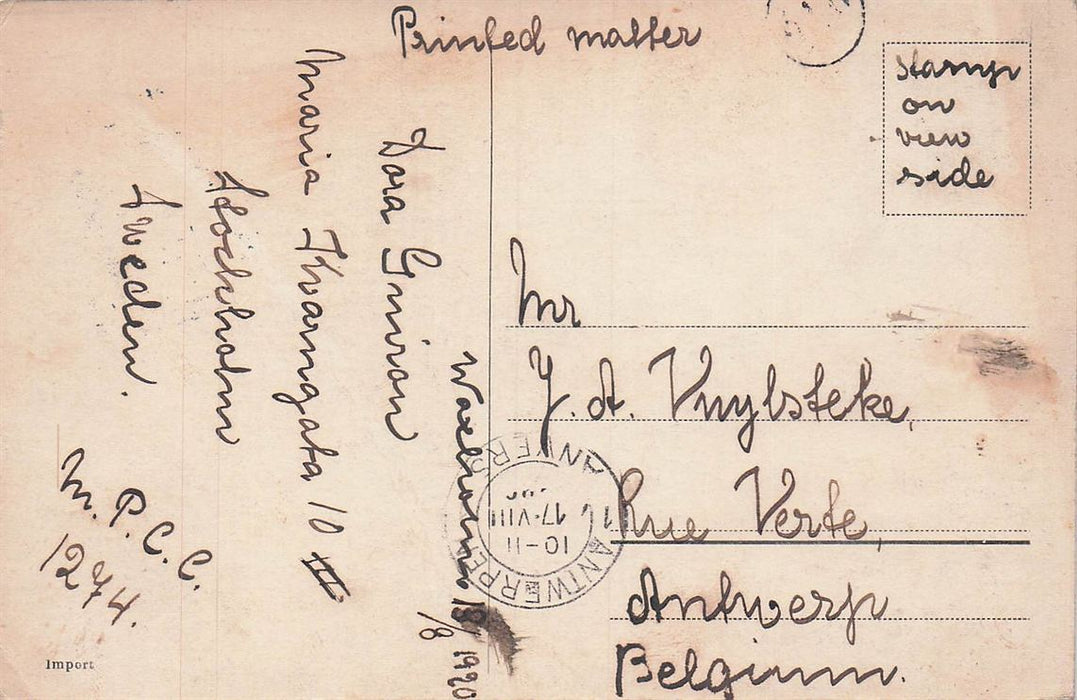 Printed matter
stamp
on
view
side
Dora Gniron
Maria Kvarngata 10 III
Stockholm
Sweden.
M. P. C. C.
1274.
Waxholm 13/8 1920
Mr
J. A. Vuylsteke,
Rue Verte,
Antwerp
Belgium.
ANTWERPEN
ANVERS
10-11
17·VIII
Import